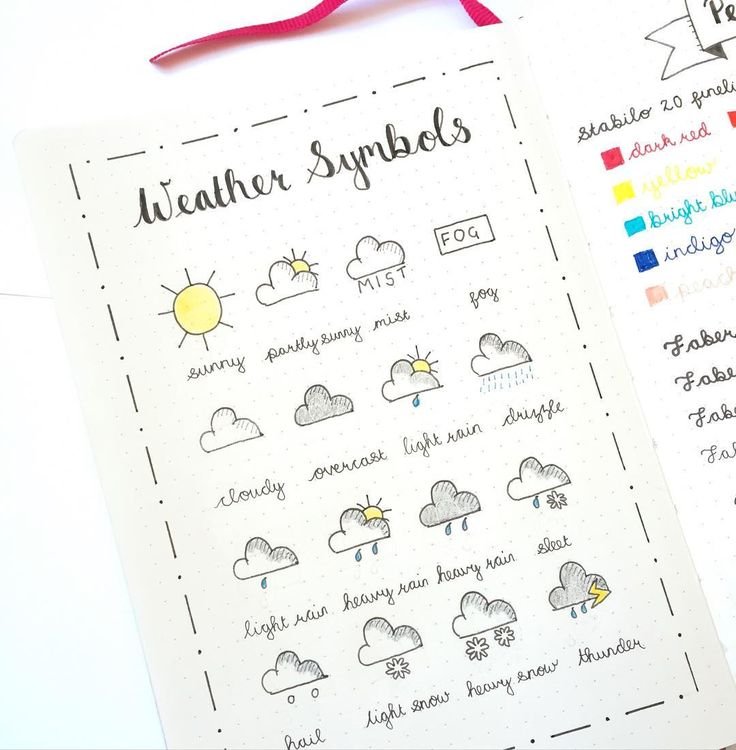 Weather Symbols
MIST
FOG
sunny
partly sunny
mist
fog
cloudy
overcast
light rain
drizzle
light rain
heavy rain
heavy rain
sleet
hail
light snow
heavy snow
thunder
Pe
Stabilo 20 fineli
dark red
yellow
bright blu
indigo
peach
Faber
Fabe
Fabe
Fa